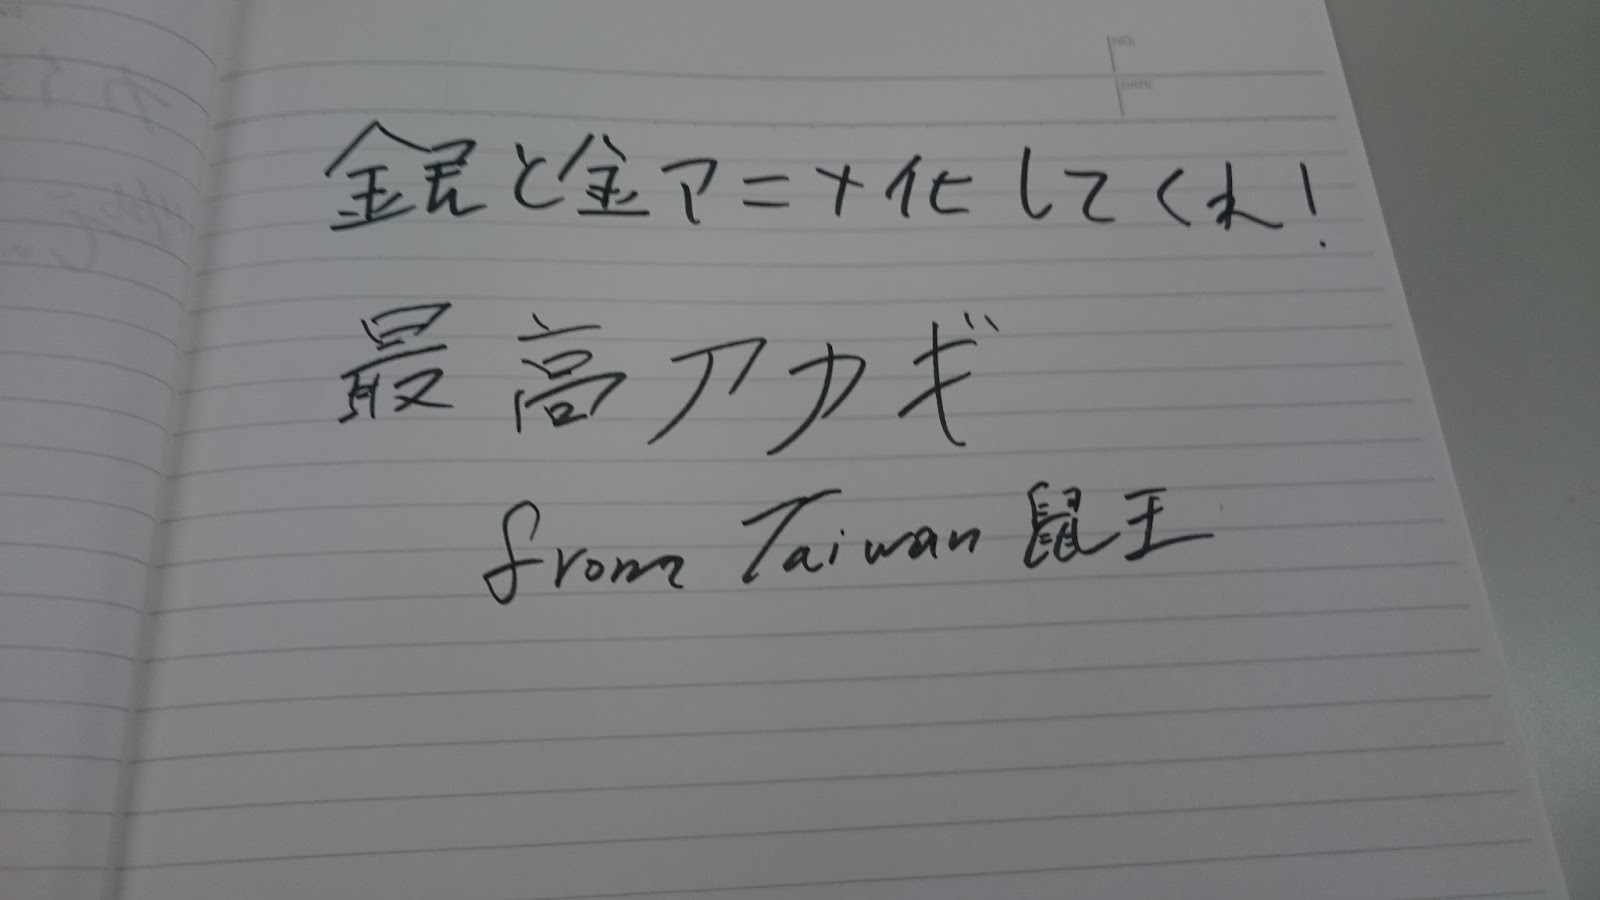 NO.
DATE
銀と金アニメ化してくれ!
最高アカギ
from Taiwan 鼠王